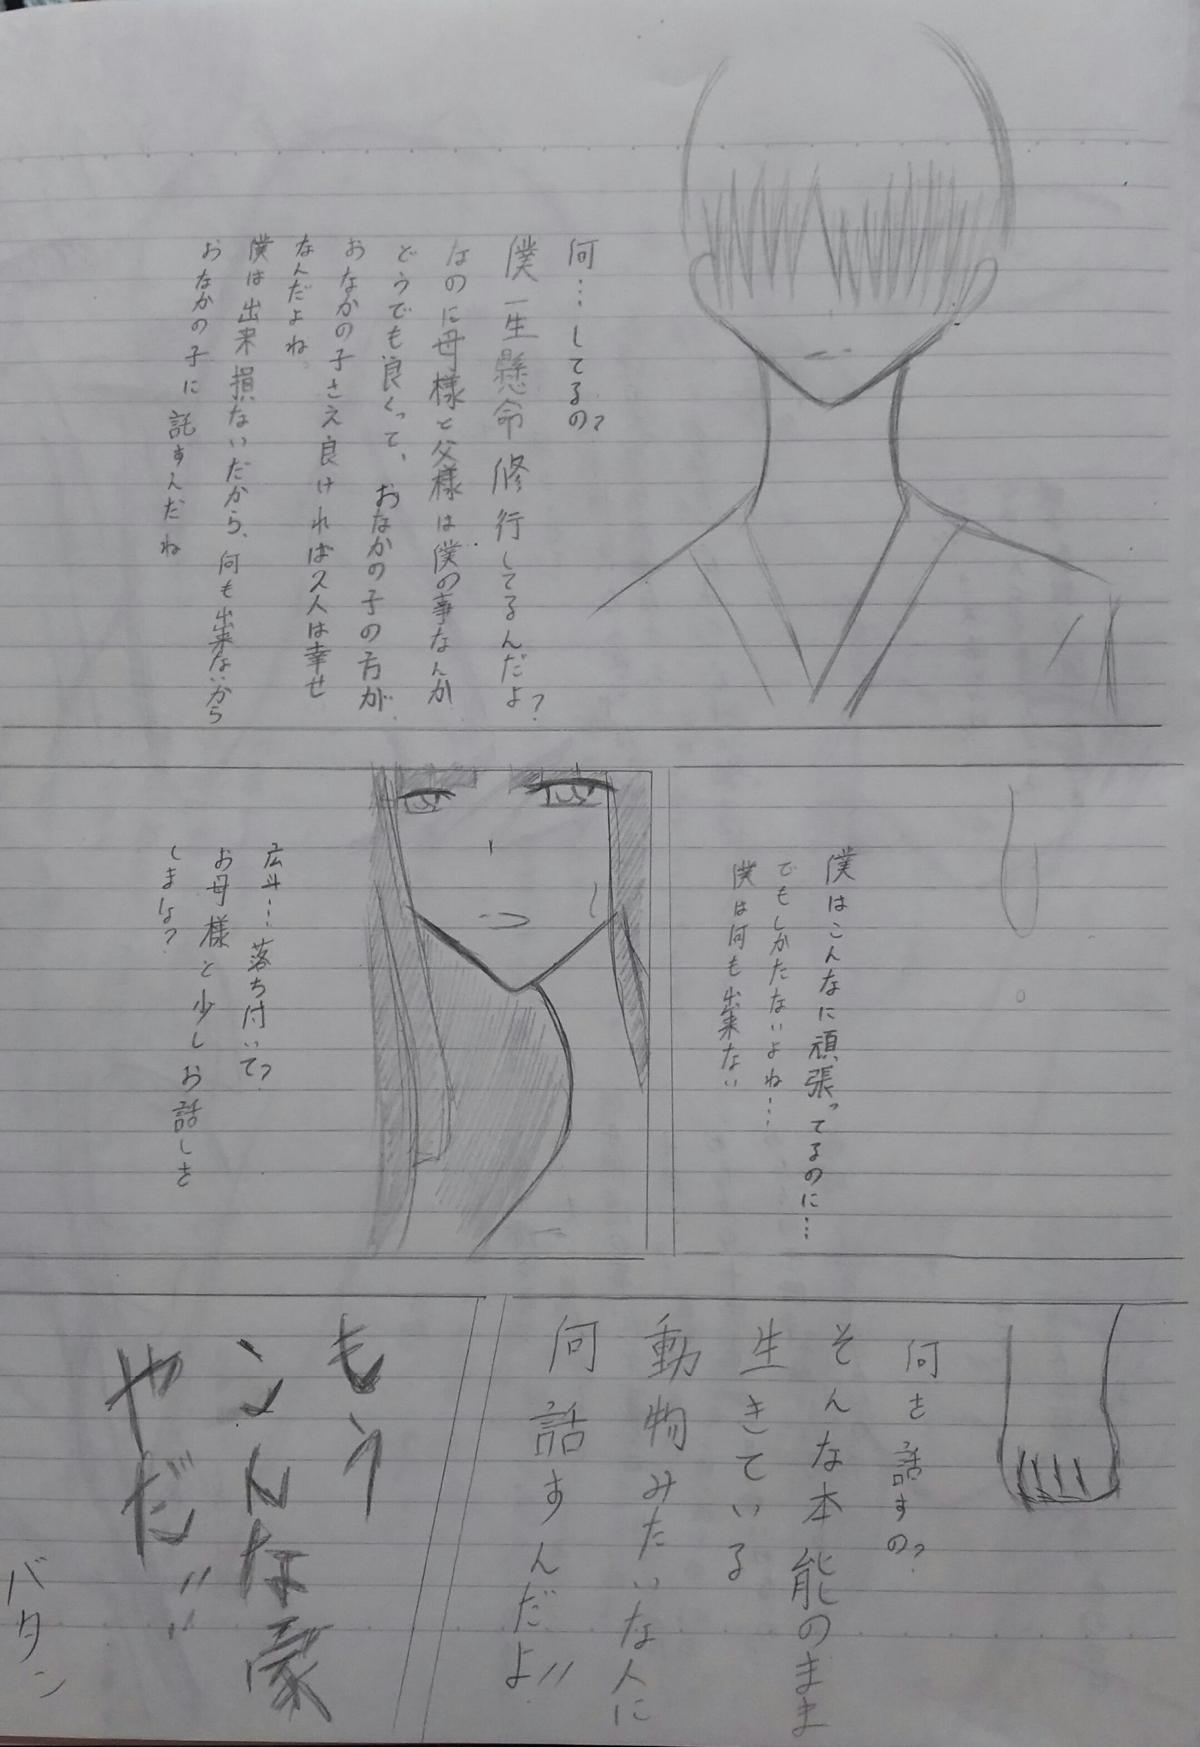 何…してるの?
僕一生懸命修行してるんだよ?
なのに母様と父様は僕の事なんか
どうでも良くって、おなかの子の方が
おなかの子さえ良ければ2人は幸せ
なんだよね。
僕は出来損ないだから、何も出来ないから
おなかの子に託すんだね
僕はこんなに頑張ってるのに…
でもしかたないよね…
僕は何も出来ない
広斗…落ち付いて?
お母様と少しお話しを
しまよ?
何を話すの?
そんな本能のまま
生きている
動物みたいな人に
何話すんだよ!!
もう
こんな家
やだ!!
バタン